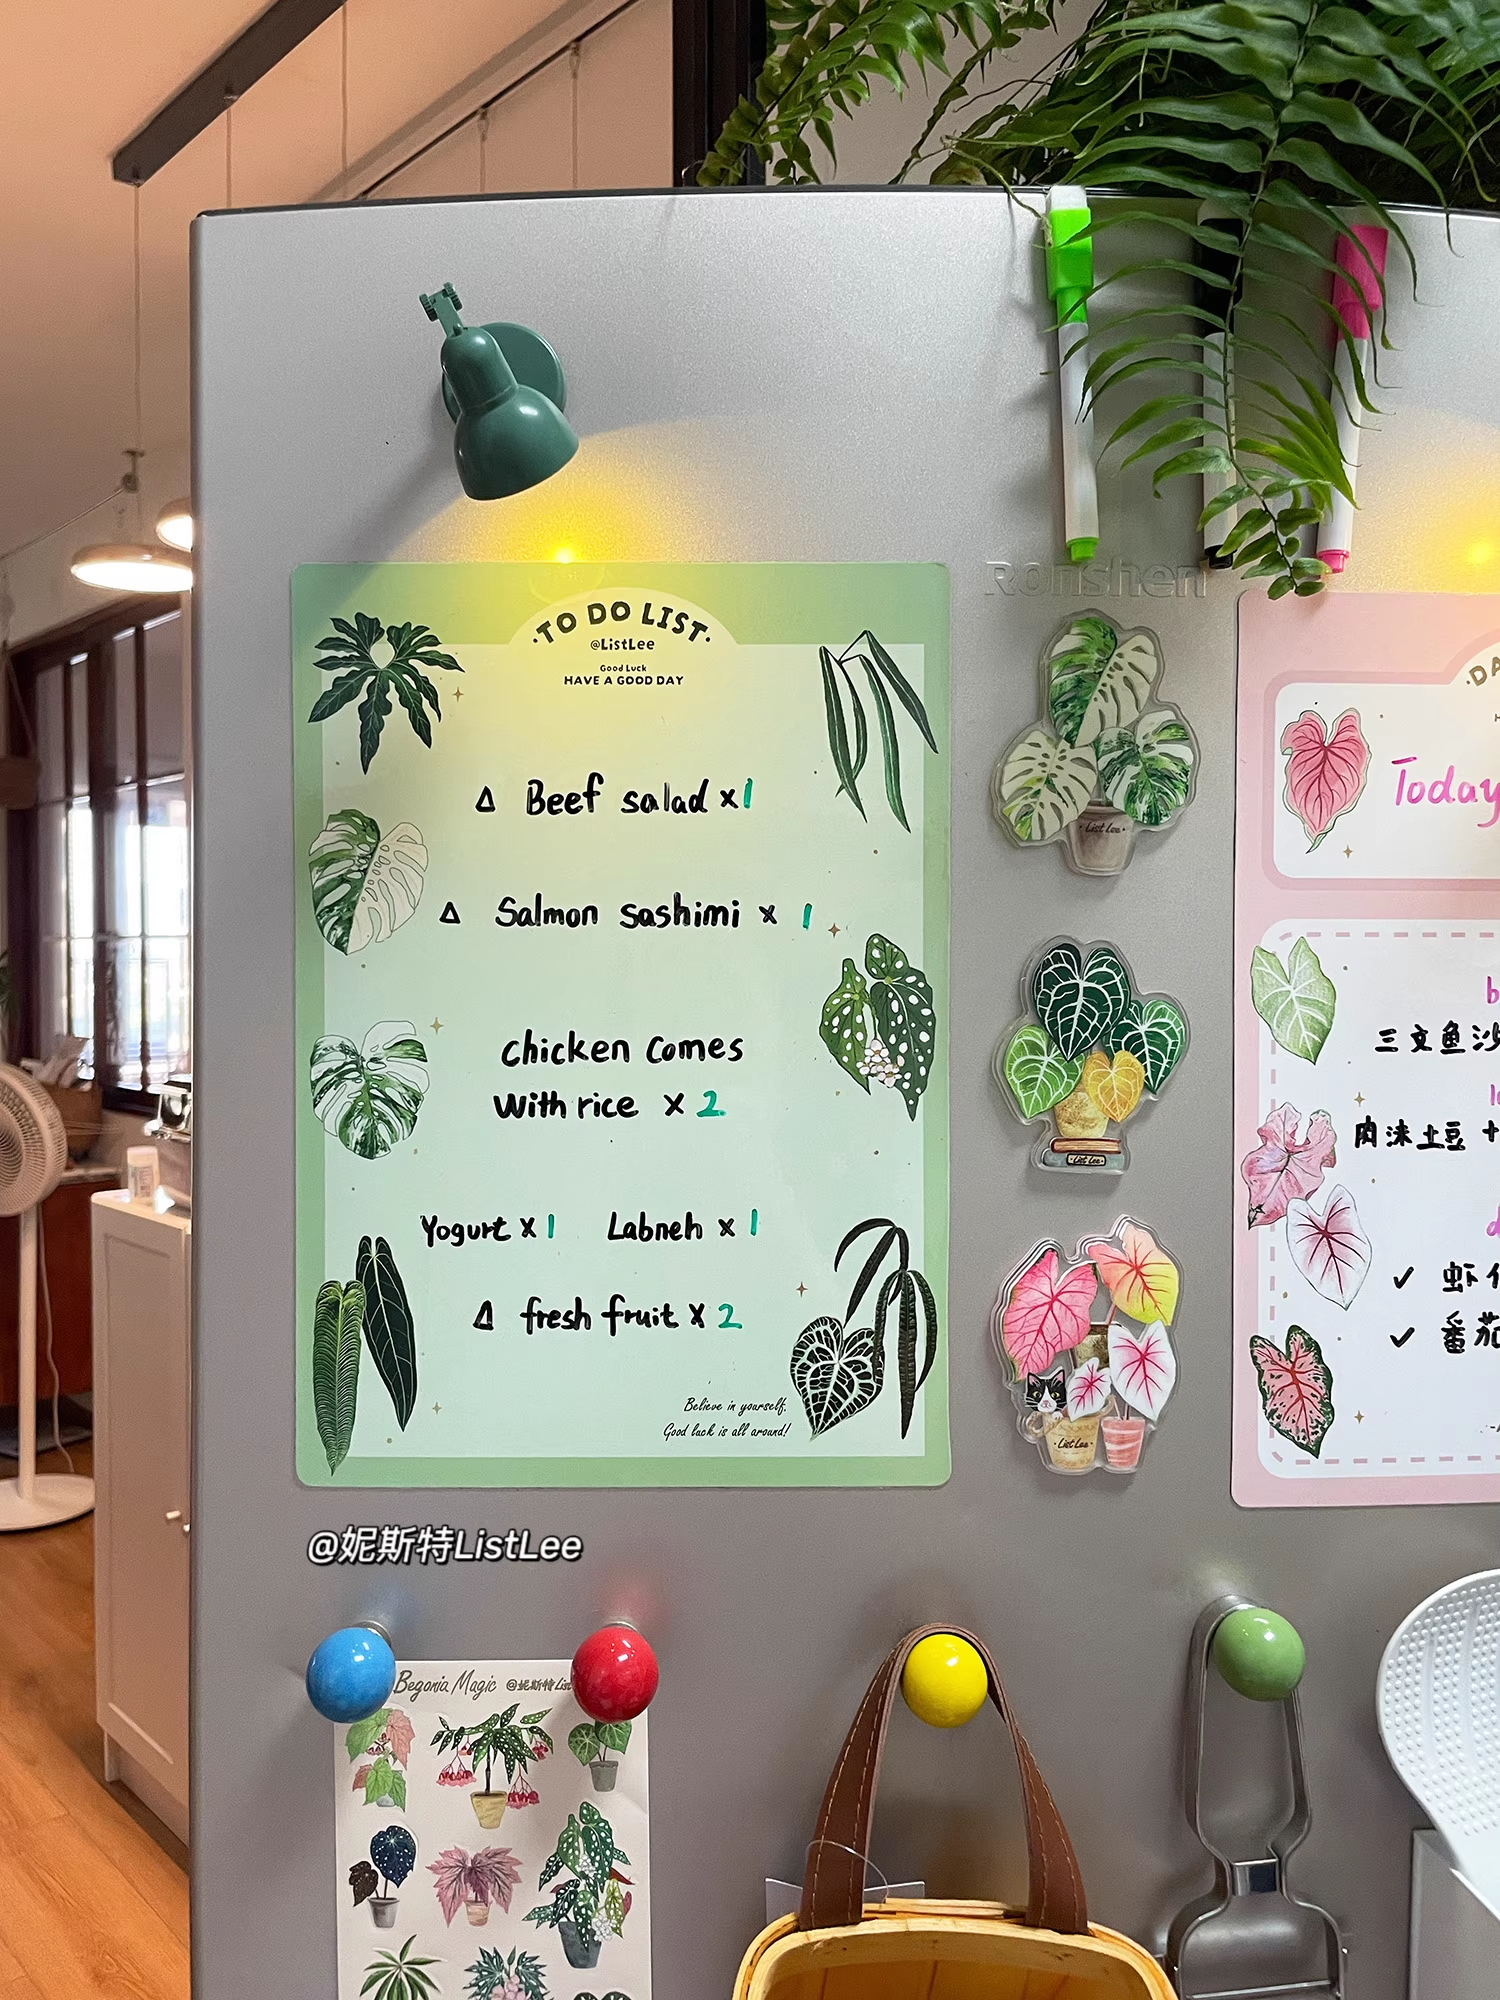 TO DO LIST
@ListLee
Good Luck
HAVE A GOOD DAY
Δ Beef salad x1
Δ Salmon sashimi x 1
chicken comes
with rice x 2
Yogurt x 1 Labneh x 1
Δ fresh fruit x 2
Believe in yourself.
Good luck is all around!
Ronshen
List Lee
List Lee
List Lee
Today
三文鱼沙
肉沫土豆 +
✓ 虾
✓ 番茄
@妮斯特ListLee
Begonia Magic @妮斯特List